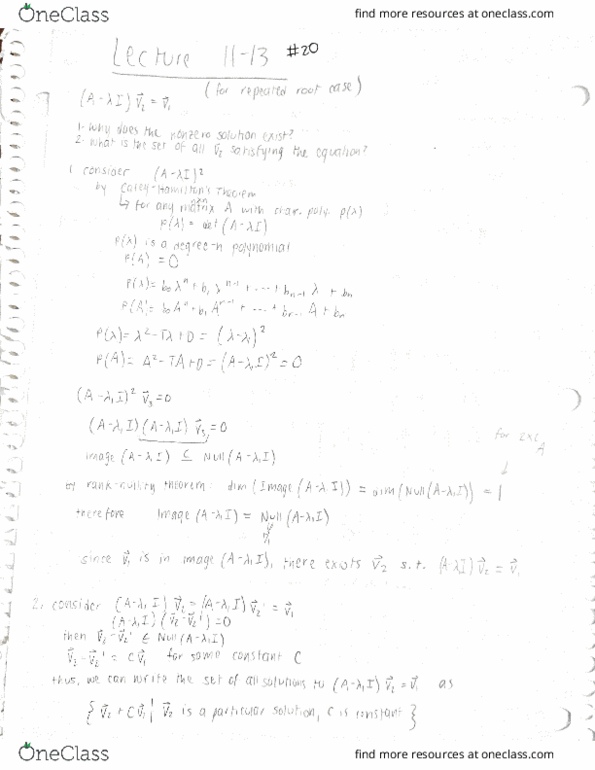 OneClass
find more resources at oneclass.com
Lecture 11-13 #20
(for repeated root case)
(A-λI) v⃗₂ = v⃗₁
1. Why does the nonzero solution exist?
2. What is the set of all v⃗₂ satisfying the equation?
1. consider (A-λI)²
by Caley-Hamilton's Theorem
↳ for any matrix A with char. poly. p(λ)
P(λ) = det (A-λI)
P(λ) is a degree-n polynomial
P(A) = 0
P(λ) = b₀λⁿ + b₁λⁿ⁻¹ + ... + bₙ₋₁λ + bₙ
P(A) = b₀Aⁿ + b₁Aⁿ⁻¹ + ... + bₙ₋₁A + bₙ
P(λ) = λ² - Tλ + D = (λ-λ₁)²
P(A) = A² - TA + D = (A-λ₁I)² = 0
(A-λ₁I)² v⃗₃ = 0
(A-λ₁I)(A-λ₁I) v⃗₃ = 0
for 2x2 A
↓
image (A-λ₁I) ⊆ Null (A-λ₁I)
by rank-nullity theorem: dim (Image (A-λ₁I)) = dim (Null (A-λ₁I)) = 1
therefore Image (A-λ₁I) = Null (A-λ₁I)
v⃗₁
since v⃗₁ is in image (A-λ₁I), there exists v⃗₂ s.t. (A-λ₁I) v⃗₂ = v⃗₁
2. consider (A-λ₁I) v⃗₂ = (A-λ₁I) v⃗₂' = v⃗₁
(A-λ₁I)(v⃗₂-v⃗₂') = 0
then v⃗₂-v⃗₂' ∈ Null (A-λ₁I)
v⃗₂-v⃗₂' = Cv⃗₁ for some constant C
thus, we can write the set of all solutions to (A-λ₁I) v⃗₂ = v⃗₁ as
{ v⃗₂ + Cv⃗₁ | v⃗₂ is a particular solution, C is constant }
OneClass
find more resources at oneclass.com